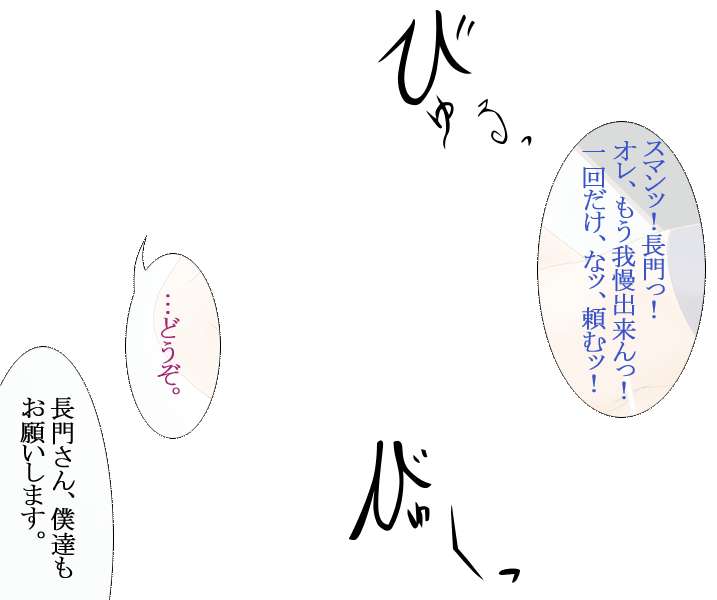 びゅるっ
スマンッ！長門っ！
オレ、もう我慢出来んっ！
一回だけ、なッ、頼むッ！
…どうぞ。
びゅくっ
長門さん、僕達も
お願いします。